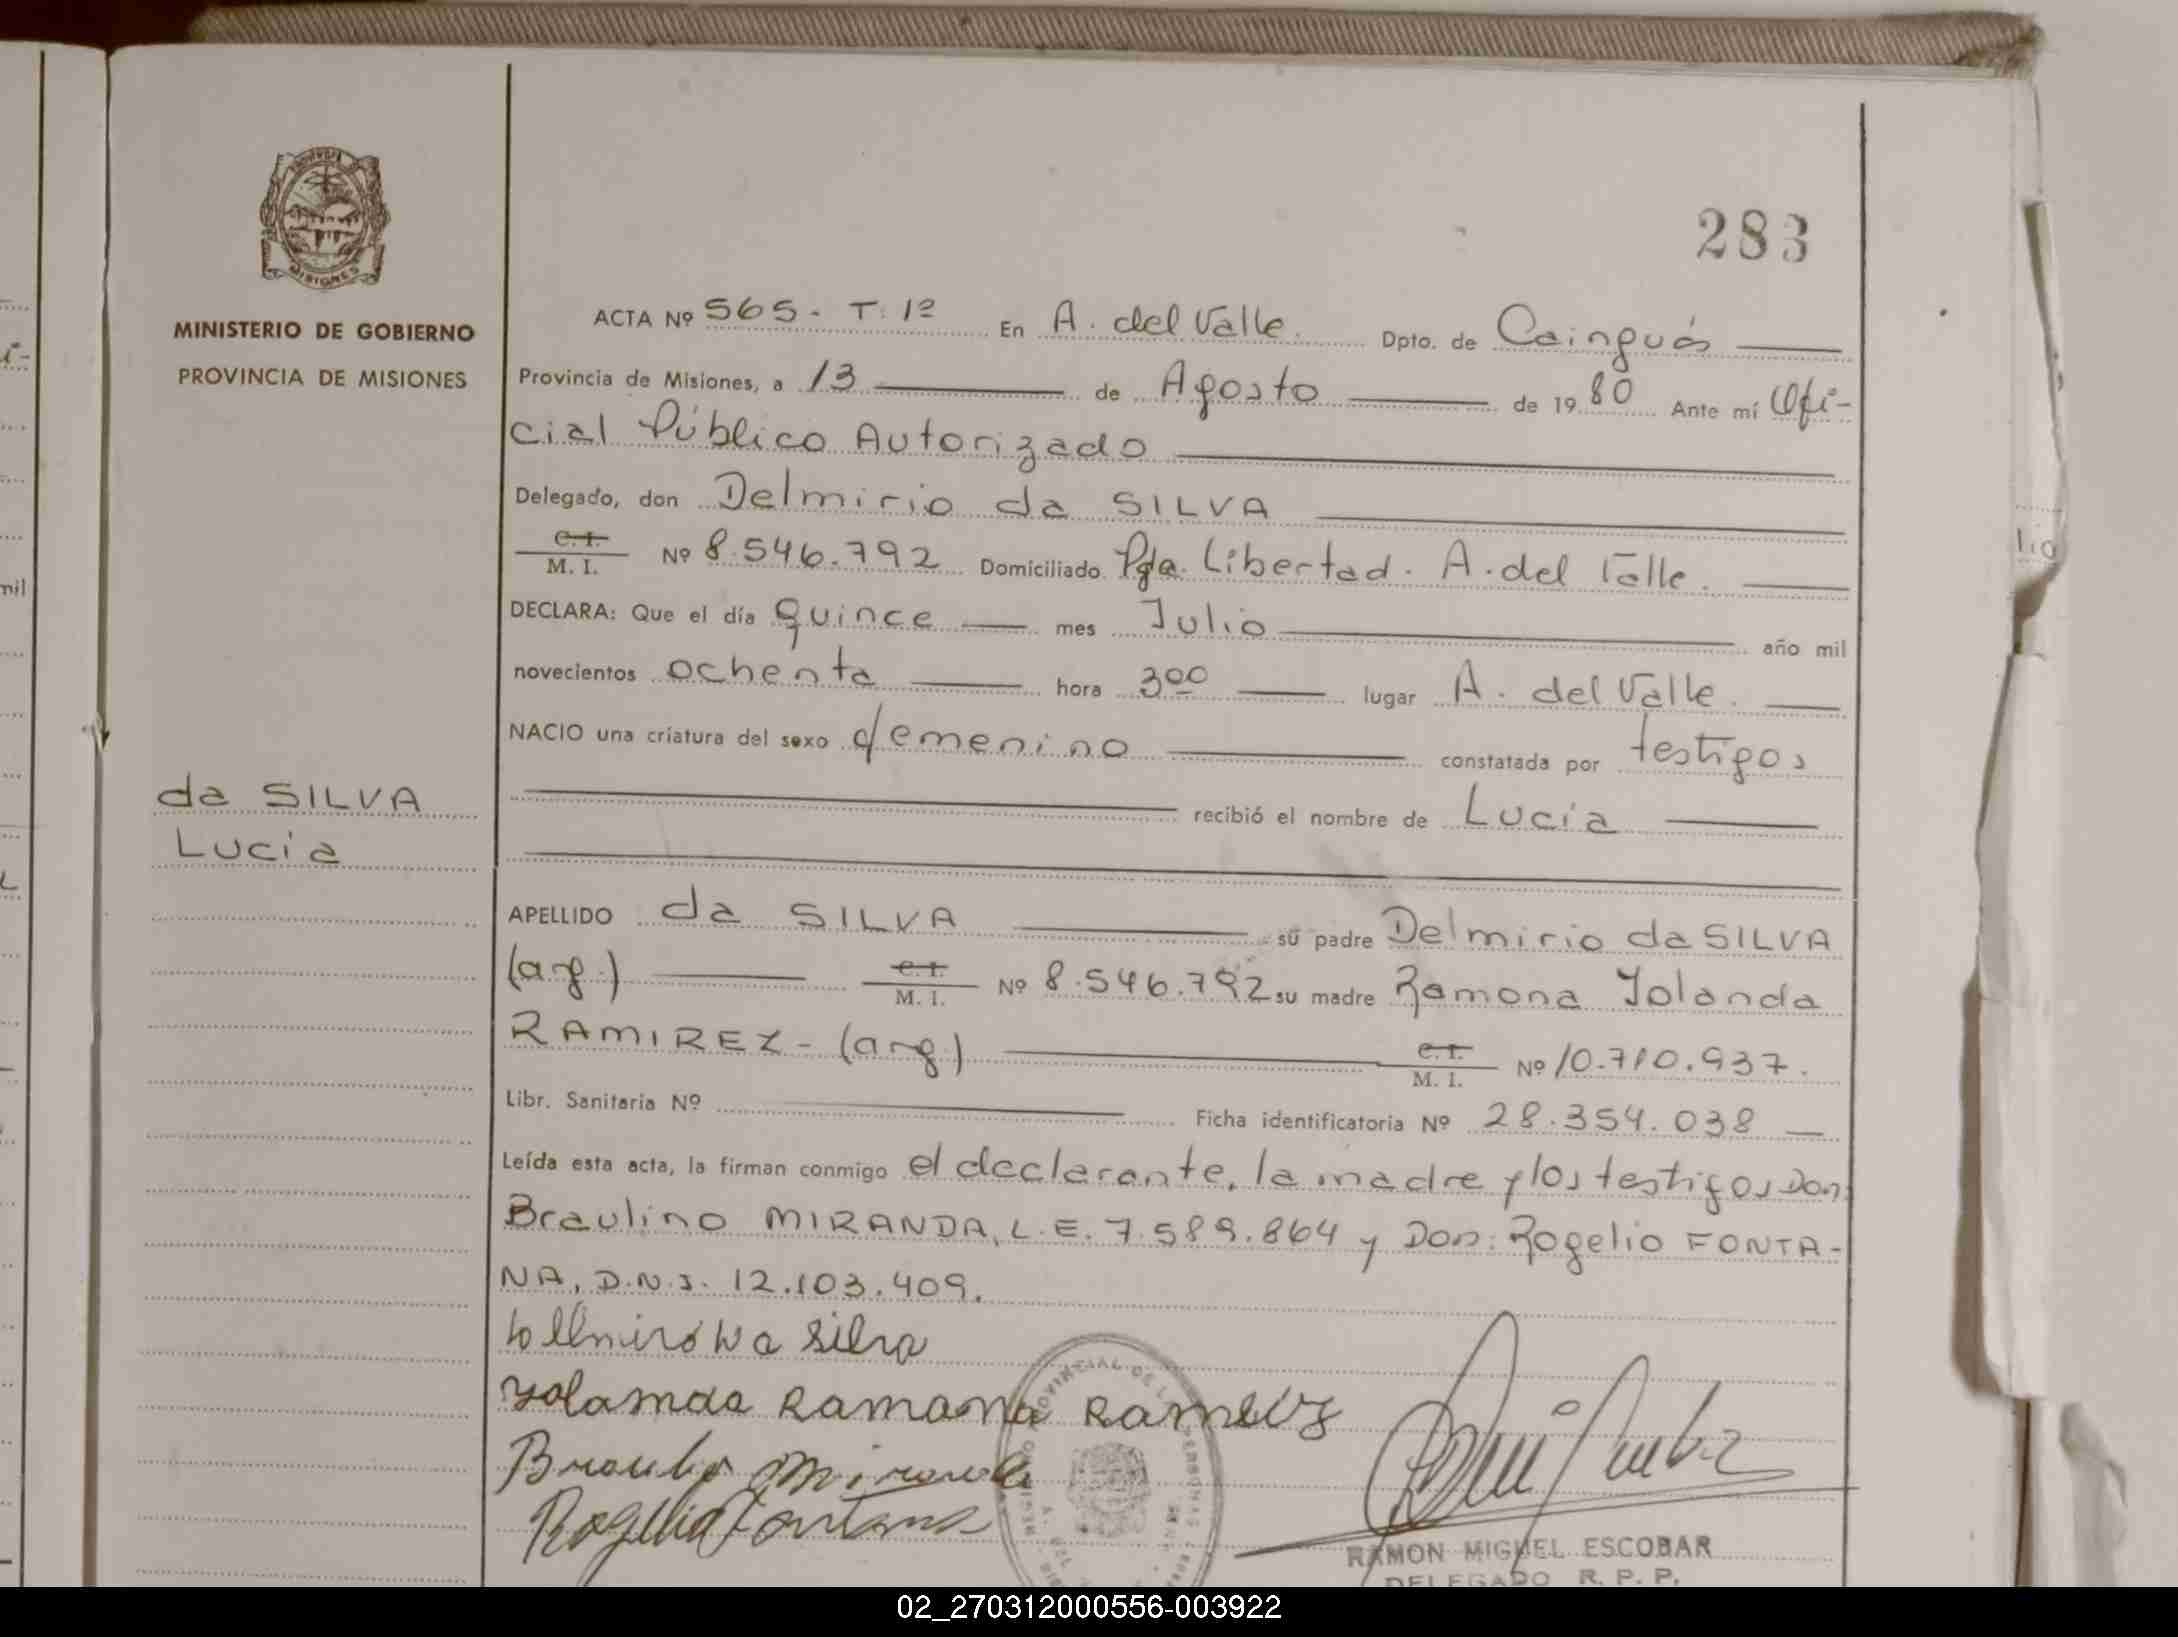 283
MINISTERIO DE GOBIERNO
PROVINCIA DE MISIONES
da SILVA
Lucía
ACTA Nº 565 - T. 1º En A. del Valle Dpto. de Cainguás
Provincia de Misiones, a 13 de Agosto de 19 80 Ante mí Ofi-
cial Público Autorizado
Delegado, don Delmirio da SILVA
C. I. M. I. Nº 8.546.792 Domiciliado Pje. Libertad. A. del Valle.
DECLARA: Que el día quince mes Julio año mil
novecientos ochenta hora 3 00 lugar A. del Valle.
NACIO una criatura del sexo femenino constatada por testigos
recibió el nombre de Lucía
APELLIDO da SILVA su padre Delmirio da SILVA
(arg.) C. I. M. I. Nº 8.546.792 su madre Ramona Yolanda
RAMIREZ - (arg.) C. I. M. I. Nº 10.710.937.
Libr. Sanitaria Nº Ficha identificatoria Nº 28.354.038
Leída esta acta, la firman conmigo el declarante, la madre y los testigos Don:
Braulino MIRANDA, L.E. 7.589.864 y Don: Rogelio FONTA-
NA, D.N.I. 12.103.409.
Silva
Yolamda Ramona Ramirez
Miranda
Rogelio Fontana
RAMON MIGUEL ESCOBAR
DELEGADO R. P. P.
02_270312000556-003922